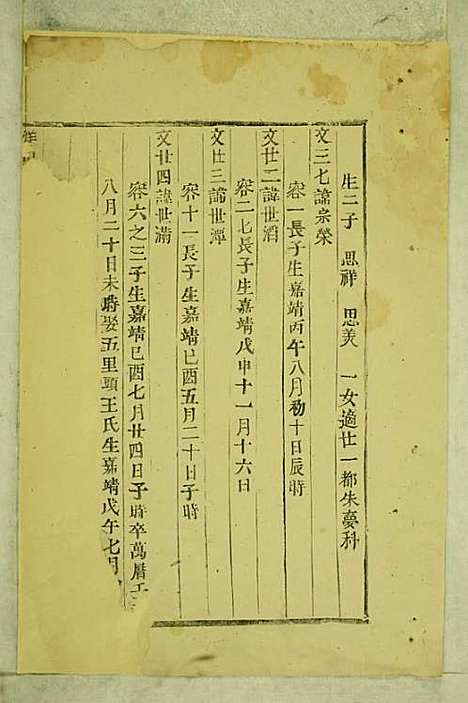 生二子 思祥 思美 一女適廿一都朱夢科
文三七諱宗榮
容一長子生嘉靖丙午八月初十日辰時
文廿二諱世滔
容二七長子生嘉靖戊申十一月十六日
文廿三諱世潭
容十一長子生嘉靖己酉五月二十日子時
文廿四諱世滿
容六之三子生嘉靖己酉七月廿四日子時卒萬曆壬
八月二十日未時娶五里頭王氏生嘉靖戊午七月